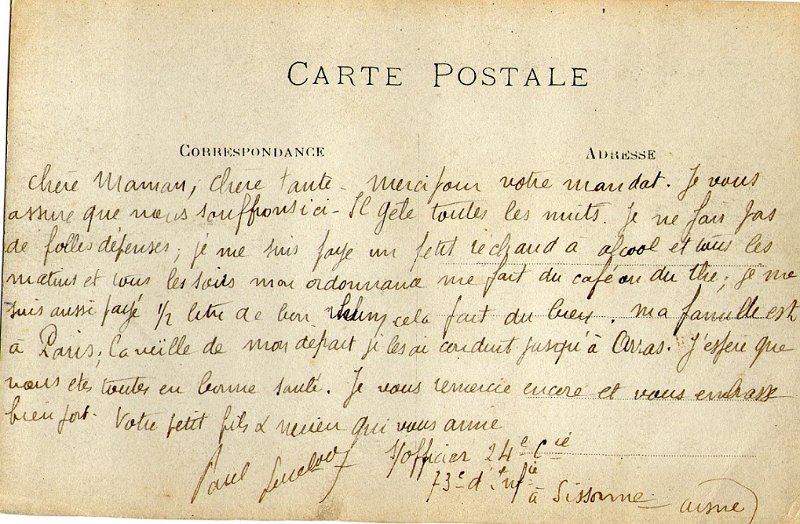 CARTE POSTALE
CORRESPONDANCE
ADRESSE
chere Maman, chere tante - merci pour votre mandat. Je vous
assure que nous souffrons ici - Il gele toutes les nuits. Je ne fais pas
de folles depenses; je me suis payé un petit rechaud à alcool et tous les
matins et tous les soirs mon ordonnance me fait du café ou du thé; je me
suis aussi payé 1/2 litre de bon rhum, cela fait du bien. ma famille est
à Paris, la veille de mon départ je les ai conduit jusqu'à Arras. J'espère que
vous etes toutes en bonne santé. Je vous remercie encore et vous embrasse
bien fort. Votre petit fils & neveu qui vous aime
Paul
S/officier 24e Cie
73e d'Infie
à Sissonne aisne